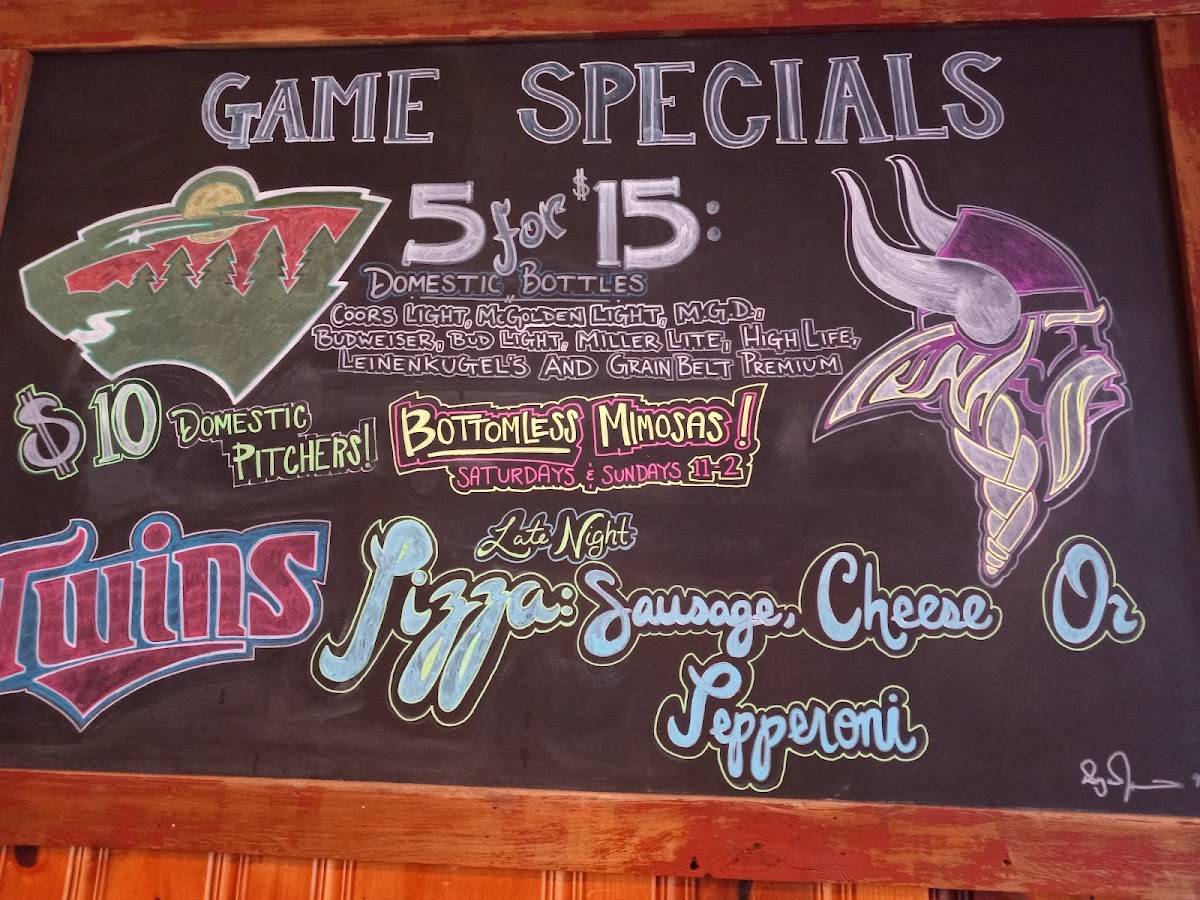 GAME SPECIALS
5 for $15:
DOMESTIC BOTTLES
COORS LIGHT, McGOLDEN LIGHT, M.G.D.,
BUDWEISER, BUD LIGHT, MILLER LITE, HIGH LIFE,
LEINENKUGEL'S AND GRAIN BELT PREMIUM
$10 DOMESTIC
PITCHERS!
BOTTOMLESS MIMOSAS!
SATURDAYS & SUNDAYS 11-2
Twins
Late Night
Pizza: Sausage, Cheese Or
Pepperoni